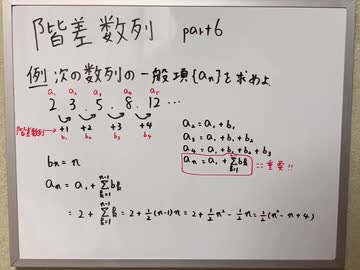 階差数列 part6
例 次の数列の一般項{aₙ}を求めよ
a₁ a₂ a₃ a₄ a₅
2. 3. 5. 8. 12 ...
階差数列→ +1 +2 +3 +4
b₁ b₂ b₃ b₄
a₂ = a₁ + b₁
a₃ = a₁ + b₁ + b₂
a₄ = a₁ + b₁ + b₂ + b₃
aₙ = a₁ + Σ[k=1, n-1] bₖ :: 重要!!
bₙ = n
aₙ = a₁ + Σ[k=1, n-1] bₖ
= 2 + Σ[k=1, n-1] k = 2 + 1/2 (n-1) n = 2 + 1/2 n² - 1/2 n = 1/2 (n² - n + 4)